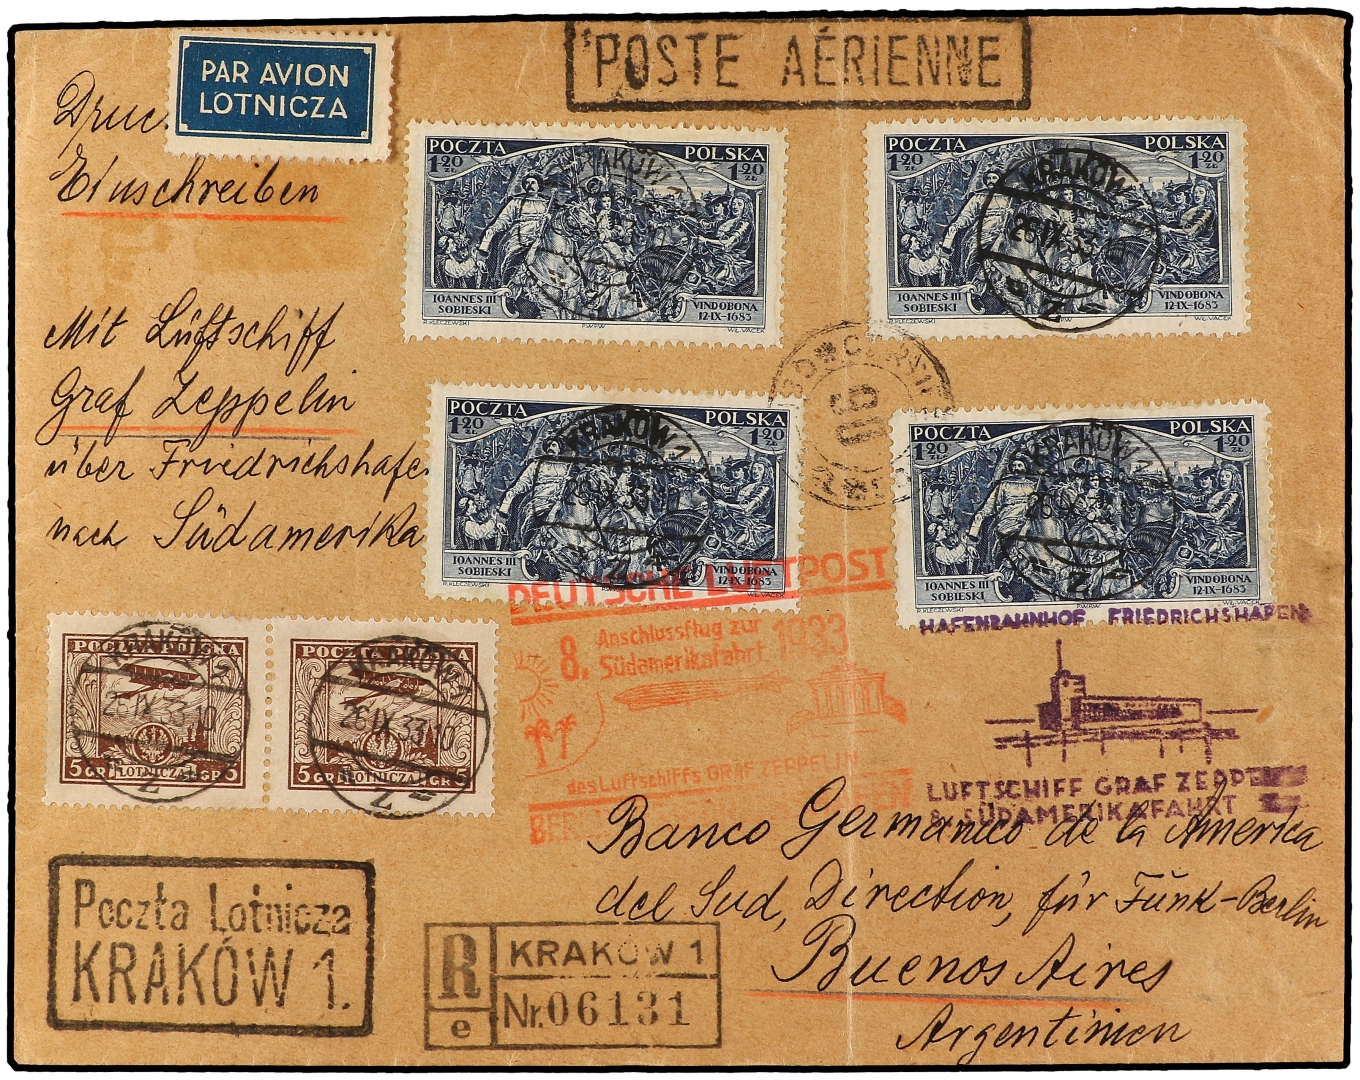 POSTE AÉRIENNE
PAR AVION
LOTNICZA
Druc
Einschreiben
Mit Luftschiff
Graf Zeppelin
über Friedrichshafe
nach Südamerika
POCZTA POLSKA
1.20 ZŁ. 1.20 ZŁ.
KRAKÓW 1
IOANNES III SOBIESKI
VINDOBONA 12·IX·1683
R.KLECZEWSKI P.W.P.W. WŁ.VACEK
POCZTA POLSKA
1.20 1.20
KRAKÓW 1
26 IX 33
IOANNES III SOBIESKI
VINDOBONA 12·IX·1683
R.KLECZEWSKI P.W.P.W. WŁ.VACEK
POCZTA POLSKA
1.20 ZŁ. 1.20 ZŁ.
KRAKÓW 1
26 IX 33
IOANNES III SOBIESKI
VINDOBONA 12·IX·1683
R.KLECZEWSKI WŁ.VACEK
POCZTA POLSKA
1.20 ZŁ. 1.20 ZŁ.
KRAKÓW 1
26 IX 33
IOANNES III SOBIESKI
VINDOBONA 12·IX·1683
R.KLECZEWSKI P.W.P.W. WŁ.VACEK
DEUTSCHE LUFTPOST
8. Anschlussflug zur
Südamerikafahrt 1933
des Luftschiffs GRAF ZEPPELIN
HAFENBAHNHOF FRIEDRICHSHAFEN
LUFTSCHIFF GRAF ZEPPE
8. SÜDAMERIKAFAHRT
POCZTA POLSKA
KRAKÓW 1
26 IX 33 10
5 GR LOTNICZA GR 5
POCZTA POLSKA
KRAKÓW 1
26 IX 33 10
5 GR LOTNICZA GR 5
Banco Germanico de la America
del Sud, Direction, für Funk-Berlin
Buenos Aires
Argentinien
Poczta Lotnicza
KRAKÓW 1.
R
e
KRAKÓW 1
Nr. 06131